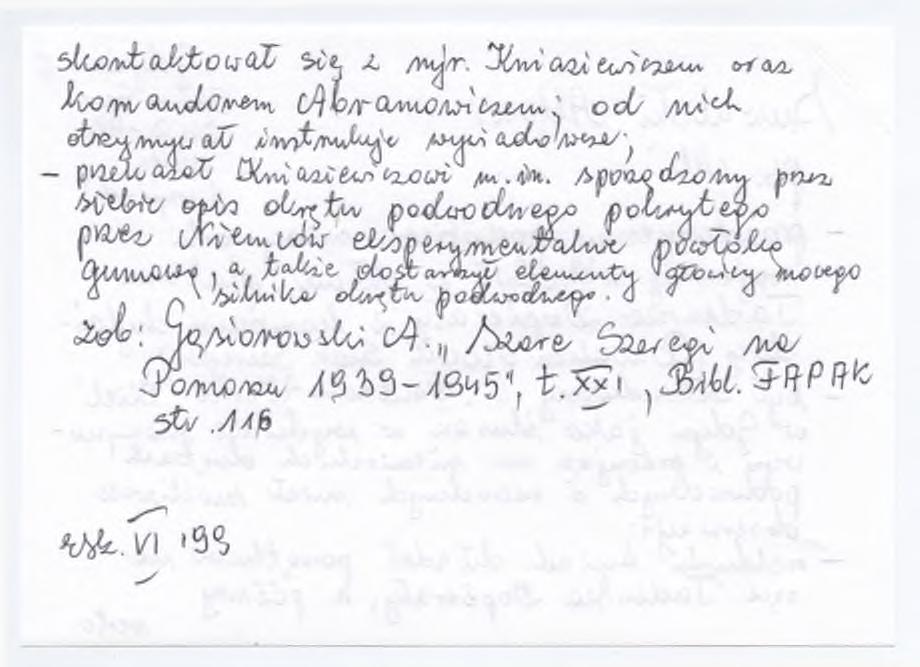 skontaktował się z mjr. Kniaziewiczem oraz
komandorem Abramowiczem, od nich
otrzymywał instrukcje wywiadowcze;
- przekazał Kniaziewiczowi m.in. sporządzony przez
siebie opis okrętu podwodnego pokrytego
przez Niemców eksperymentalne powłoką
gumową, a także dostarczył elementy głowicy nowego
silnika okrętu podwodnego.
zob. Gąsiorowski A., "Szare Szeregi na
Pomorzu 1939-1945", t. XXI, Bibl. FAPAK
str. 116
rsk. VI '99